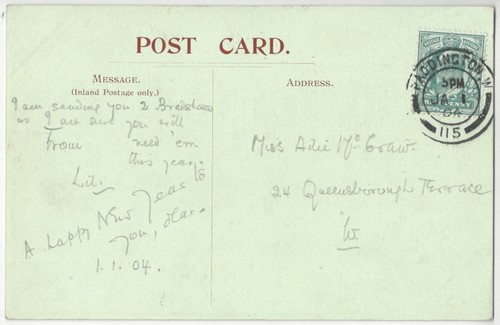 POST CARD.
MESSAGE.
(Inland Postage only.)
I am sending you 2 Bradshaws
as I am sure you will
From need 'em
this year.
Lil.
A happy New Year to
you, dear.
1.1.04.
ADDRESS.
Miss Adie McCraw
24 Queensborough Terrace
W
PADDINGTON. W
5 PM
JA 1
04
115